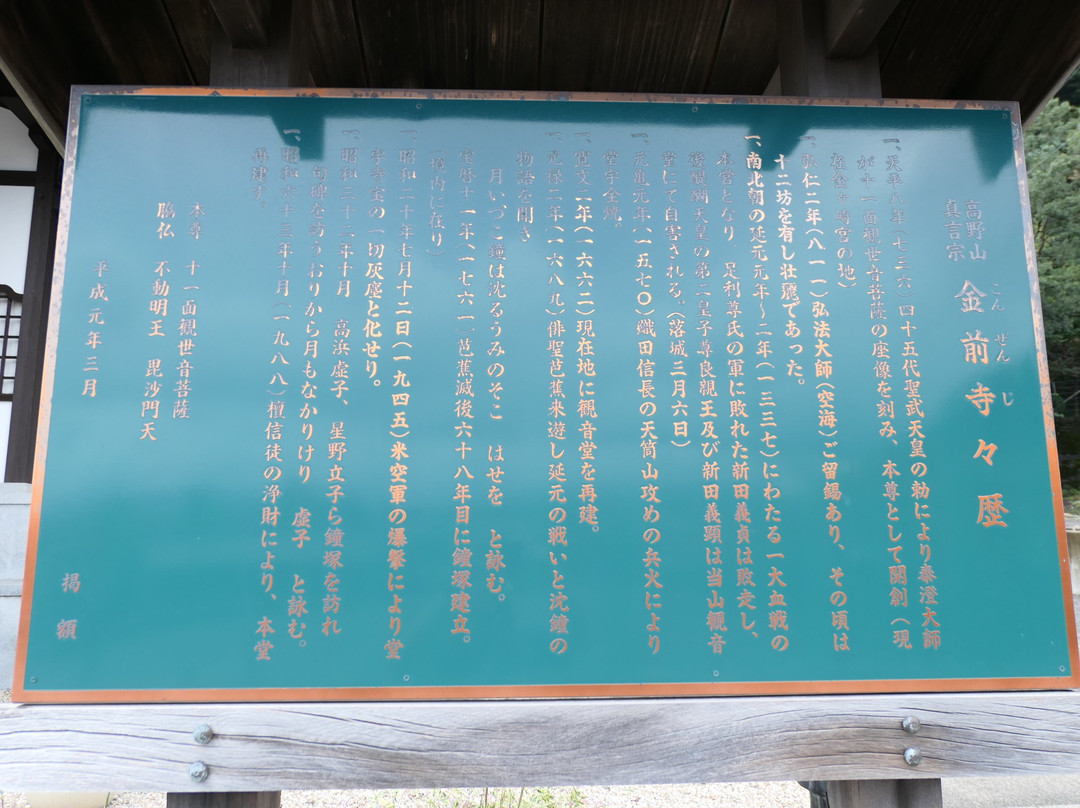 高野山
真言宗
金前寺々歴
こんせんじ
一、天平八年(七三六)四十五代聖武天皇の勅により泰澄大師
が十一面観世音菩薩の座像を刻み、本尊として開創(現
在金ヶ崎宮の地)
一、弘仁二年(八一一)弘法大師(空海)ご留錫あり、その頃は
十二坊を有し壮麗であった。
一、南北朝の延元元年～二年(一三三七)にわたる一大血戦の
本営となり 足利尊氏の軍に敗れた新田義貞は敗走し、
後醍醐天皇の第二皇子尊良親王及び新田義顕は当山観音
堂にて自害される。(落城三月六日)
一、元亀元年(一五七〇)織田信長の天筒山攻めの兵火により
堂宇全焼。
一、寛文二年(一六六二)現在地に観音堂を再建。
一、元禄二年(一六八九)俳聖芭蕉来遊し延元の戦いと沈鐘の
物語を聞き
月いづこ鐘は沈るうみのそこ はせを と詠む。
宝暦十一年(一七六一)芭蕉滅後六十八年目に鐘塚建立。
(境内に在り)
一、昭和二十年七月十二日(一九四五)米空軍の爆撃により堂
宇寺宝の一切灰塵と化せり。
一、昭和三十二年十月 高浜虚子、星野立子ら鐘塚を訪れ
句碑を訪うおりから月もなかりけり 虚子 と詠む。
一、昭和六十三年十月(一九八八)檀信徒の浄財により、本堂
再建す。
本尊 十一面観世音菩薩
脇仏 不動明王 毘沙門天
平成元年三月
掲額